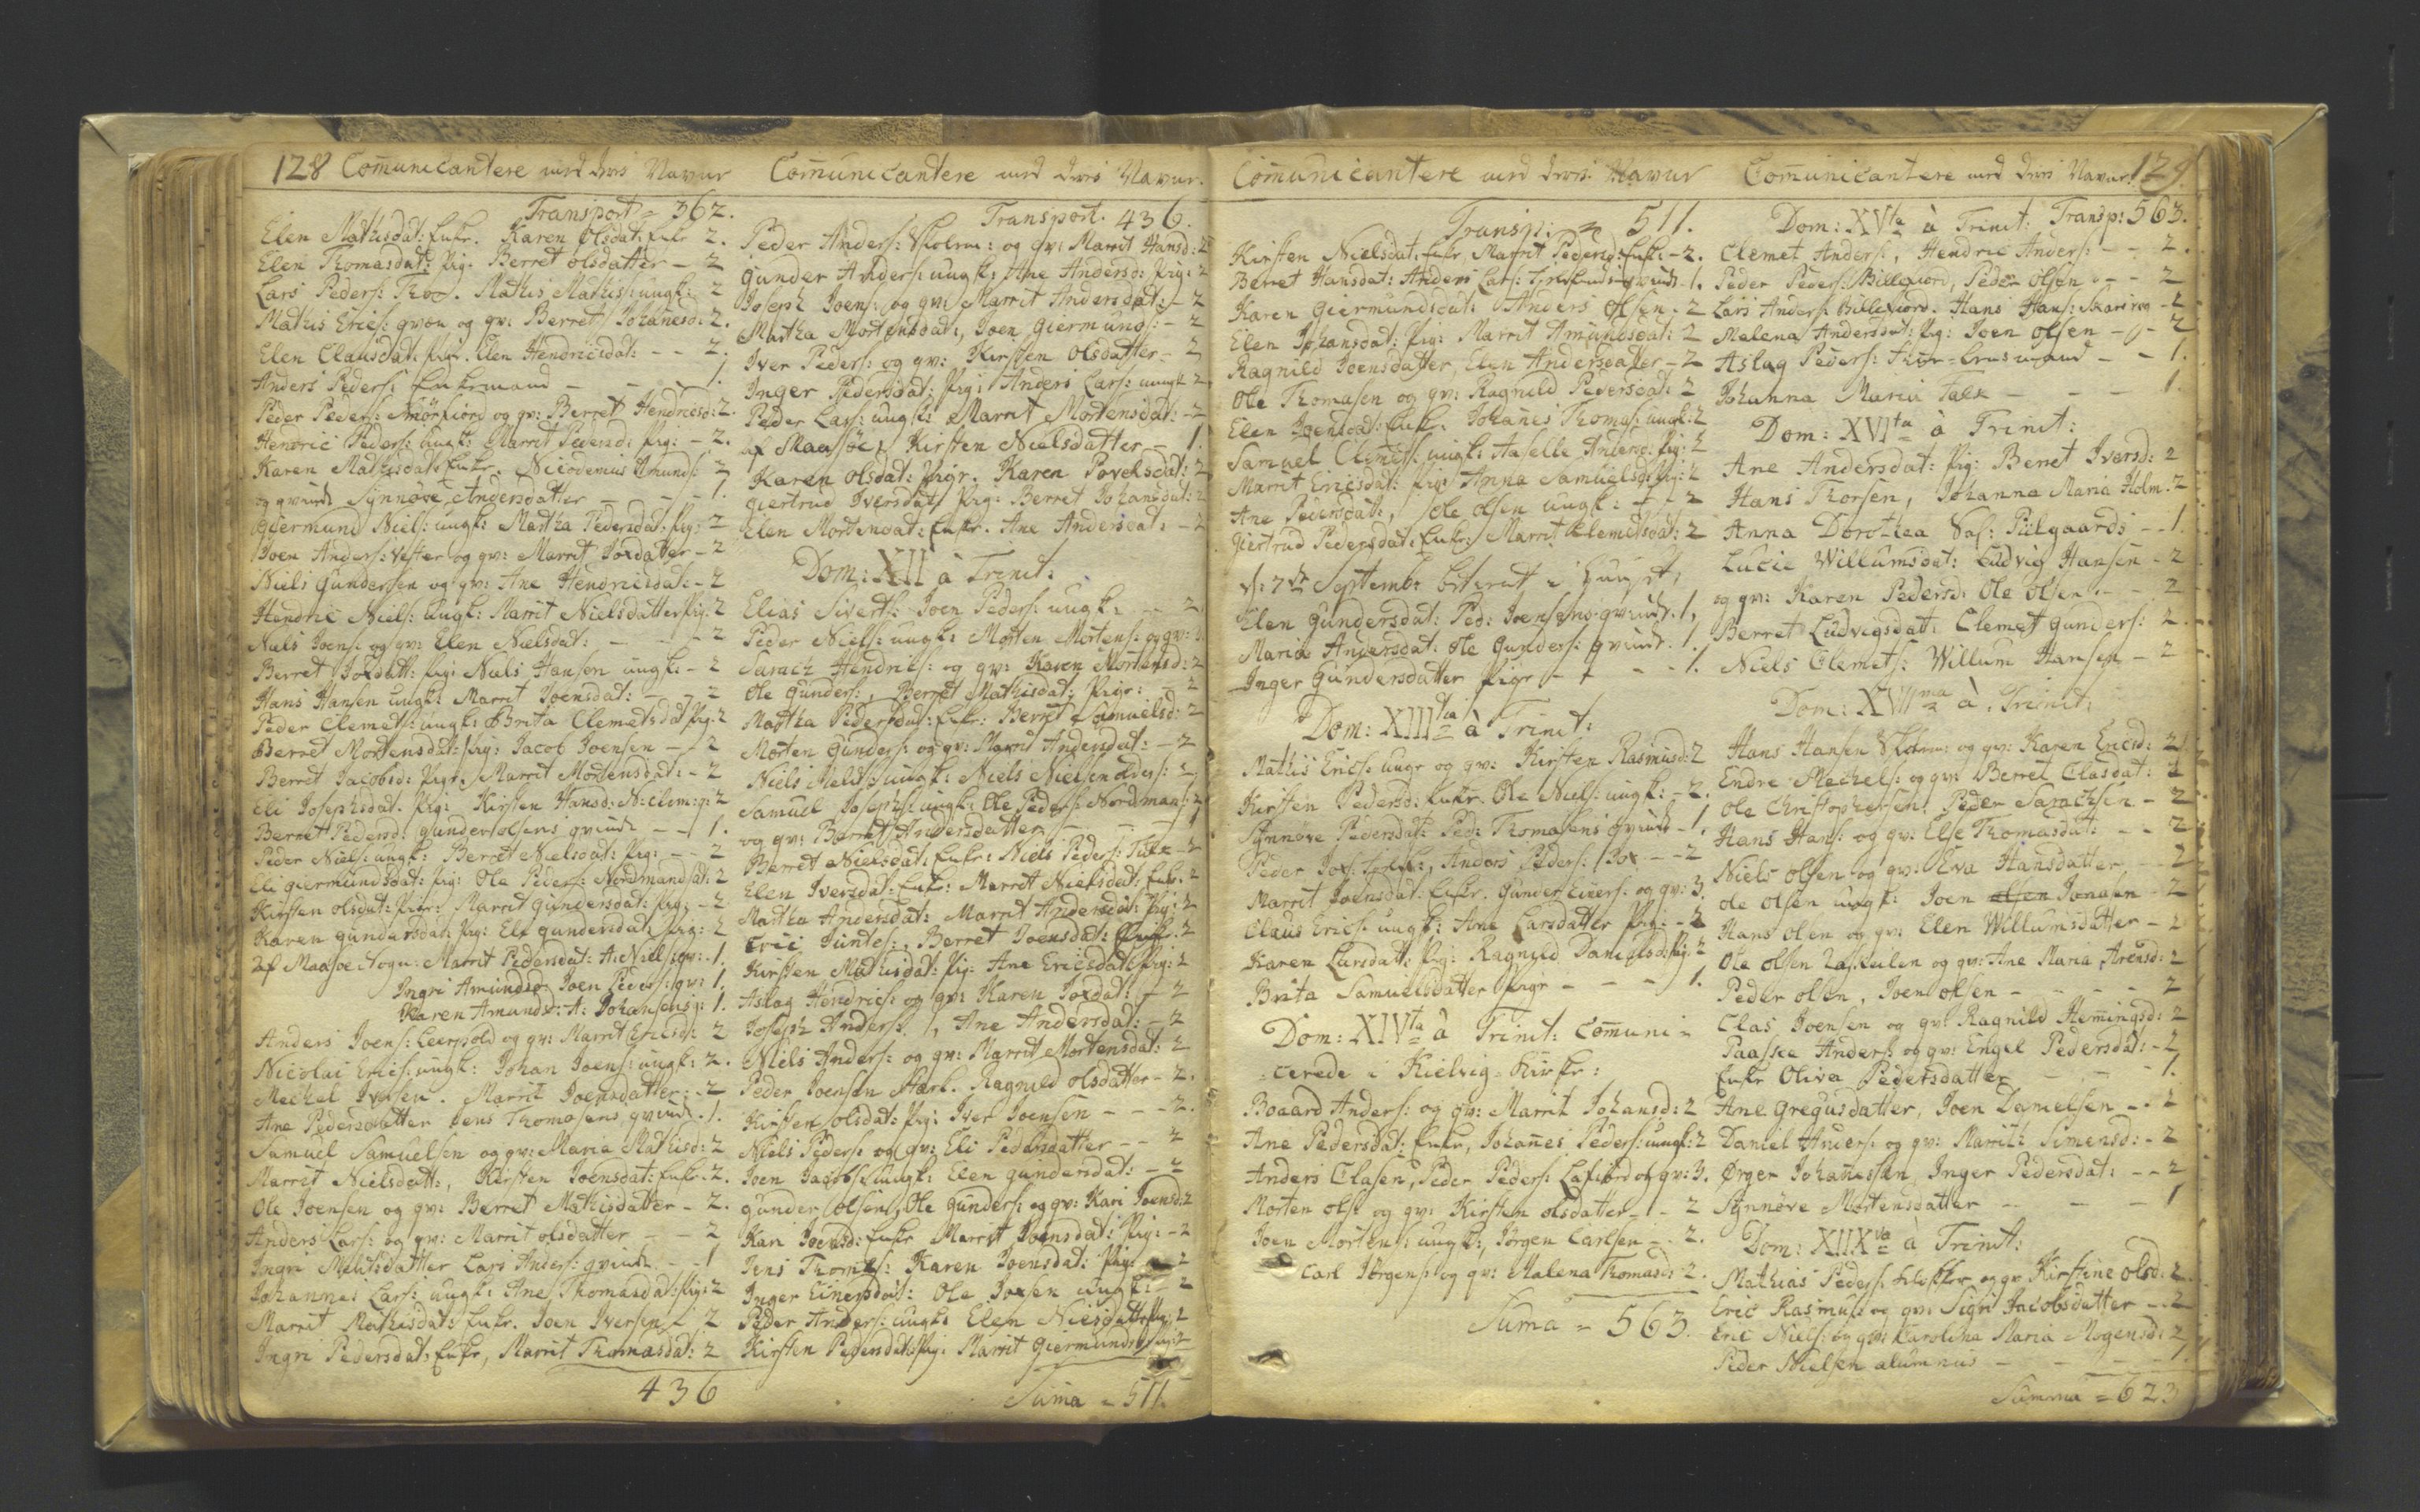 128 Com̄unicantere med deres Navne
Transport = 362.
Elen Mathisdat: Enke. Karen Olsdat: Enke 2.
Elen Thomasdat: Pig. Berret olsdatter - 2
Lars Peders: Mathis Mathis: ungk: 2
Mathis Erics: og qv: Berret Johanesd: 2.
Elen Clausdat: Pige. Elen Hendricsdat: - - 2.
Anders Peders: Enkemand - - - 1.
Peder Peders: Smörfiord og qv: Berret Hendricsd: 2.
Henric Peders: ungk: Marrit Pedersd: Pig: - 2.
Karen Mathisdat: Enke. Nicodemus Amunds: 2
og qvinde Synnøve Andersdatter - - - 1.
Giermund Niels: ungk: Martha Pedersdat: Pig: 2
Joen Anders: Vester og qv: Marrit Joxdatter - 2
Niels Gundersen og qv: Ane Hendricsdat: - 2
Hendric Niels: ungk: Marrit Nielsdatter Pig: 2
Niels Joens: og qv: Elen Nielsdat: - - - 2
Berret Joxdatt: Pig: Niels Hansen ungk: - 2
Hans Hansen ungk: Marrit Joensdat: - - 2
Peder Clemets: ungk: Brita Clemetsdat Pig: 2
Berret Mortensdat: Pig: Jacob Joensen - - 2
Berret Jacobsd: Pige. Marrit Mortensdat: - 2
Eli Josephsdat. Pig: Kirsten Hansd: N: Clem: q: 2
Berret Pedersd: gunder olsens qvinde - - 1.
Peder Niels: ungk: Berret Nielsdat: Pig: - - 2
Eli giermundsdat: Pig: Ole Peders: Nordmandsat: 2
Kirsten olsdat: Pige: Marrit Gundersdat: Pig: - 2
Karen gundersdat: Pig: Else gundersdat: Pig: 2
af Maasøe Sogn: Marrit Pedersdat: A: Niels: qv: 1.
Ingri Amundsd: Joen Peders: qv: 1.
Karen Amundsd: A: Johansens q: 1.
Anders Joens: Leerpold og qv: Marrit Ericsd: 2
Nicolai Erics: ungk: Johan Joens: ungk: 2.
Meckel Iversen. Marrit Joensdatter: - 2
Ane Pedersdatter Jens Thomasens qvinde. 1.
Samuel Samuelsen og qv: Maria Mathisd: 2
Marrit Nielsdatt:, Kirsten Joensdat: Enke. 2.
Ole Joensen og qv: Berret Mathisdatter - 2.
Anders Lars: og qv: Marrit olsdatter - - 2
Ingri Melitsdatter Lars Anders: qvinde - - 1
Johannes Lars: ungk: Ane Thomasdat: Pig: 2
Marrit Mathisdat: Enke. Joen Iversen - 2
Ingri Pedersdat: Enke, Marrit Thomasdat: 2
436
Com̄unicantere med deres Navne.
Transport. 436.
Peder Anders: Skolm: og qv: Marrit Hansd: 2
Gunder Anders: ungk: Ane Andersd: Pig: 2
Joseph Joens: og qv: Marrit Andersdat: - 2
Martha Mortensdat:, Joen Giermunds: - 2
Iver Peders: og qv: Kirsten olsdatter - 2
Inger Pedersdat: Pig: Anders Lars: ungk 2
Peder Lars: ungk: Marrit Mortensdat: - 2
af Maasøe, Kirsten Nielsdatter - 1.
Karen Olsdat: Pige. Karen Povelsdat: 2
Giertrud Iversdat: Pig: Berret Johansdat: 2
Elen Mortensdat: Enke. Ane Andersdat: - 2
Dom: XII à Trinit:
Elias Siverts: Joen Peders: ungk: - - 2
Peder Niels: ungk: Morten Mortens: og qv: 3.
Sarach Hendrics: og qv: Karen Mortensd: 2
Ole Gunders:, Berret Mathisdat: Pige: - 2
Martha Pedersdat: Enke: Berret Samuelsd: 2
Morten Gunders: og qv: Marrit Andersdat: - 2
Niels Melits: ungk: Niels Nielsen alders: 2
Samuel Josephs: ungk: Ole Peders: Nordmans: 2
og qv: Berret Andersdatter - - - 1
Berret Nielsdat: Enke: Niels Peders: Falk - 2
Elen Iversdat: Enk: Marret Nielsdat: Enke. 2
Martha Andersdat: Marrit Andersdat: Pig: 2
Eric Juntes:, Berret Joensdat: Enke. 2
Kirsten Mathisdat: Pig: Ane Ericsdat: Pig: 2
Aslag Hendrics: og qv: Karen Joxdat: - 2
Joseph Anders:, Ane Andersdat: - 2
Niels Anders: og qv: Marrit Mortensdat: 2
Peder Joensen Stærk. Ragnild olsdatter - 2.
Kirsten olsdat: Pig: Iver Joensen - - - 2.
Niels Peders: og qv: Eli Pedersdatter - - 2
Joen Jacobs: ungk: Elen gundersdat: - 2
gunder olsen, Ole Gunders: og qv: Kari Joensd: 2
Kari Joensd: Enke Marrit Joensdat: Pig: - 2
Jens Thomes: Karen Joensdat: Pig: 2
Inger Einersdat: Ole Joxsen ungk: - 2
Peder Anders: ungk: Elen Nielsdatter Pig: 2
Kirsten Pedersdat: Pig: Marrit Giermundsd: Pig: 2
Suma = 511.
Com̄unicantere med deres Navne
Transp: = 511.
Kirsten Nielsdat: Enke, Marrit Pedersd: Enk: - 2.
Berret Hansdat: Anders Lars: qvinde - 1.
Karen Giermundsdat: Anders Olsen. 2
Elen Johansdat: Pig: Marrit Amundsdat: 2
Ragnild Joensdatter, Elen Andersdatter - 2
Ole Thomasen og qv: Ragnild Pedersdat: 2
Elen Joensdat: Enk. Johanes Thomas: ungk: 2
Samuel Clemets: ungk: Aaselle Andersd: Pig: 2
Marrit Ericsdat: Pig: Anna Samuelsd: Pig: 2
Ane Pedersdat:, Ole Olsen ungk: - - 2
Giertrud Pedersdat: Enke: Marrit Clemetsdat: 2
d: 7de Septemb: betient i huuset,
Elen Gundersdat: Ped: Joensens qvinde. 1.
Maria Andersdat: Ole Gunders: qvinde. 1.
Inger Gundersdatter Pige - - - 1.
Dom: XIIItia à Trinit:
Mathis Erics: unge og qv: Kirsten Rasmusd: 2
Kirsten Pedersd: Enke. Ole Niels: ungk: - 2.
Synnøve Pedersdat: Ped: Thomasens qvinde - 1.
Peder Jox:, Anders Peders: Jox - - 2
Marrit Joensdat: Enke. Gunder Einers: og qv: 3.
Claus Erics: ungk: Ane Larsdatter Pig: - 2
Karen Larsdatt: Pig: Ragnild Danielsd: Pig: 2
Brita Samuelsdatter Pige - - - 1.
Dom: XIVta à Trinit: Com̄uni-
cerede i Kielvig Kirke:
Boaard Anders: og qv: Marrit Johansd: 2
Ane Pedersdat: Enke, Johanes Peders: ungk: 2
Anders Clasen, Peder Peders: Lafiord og qv: 3.
Morten ols: og qv: Kirsten olsdatter - - 2
Joen Mortens: ungk:, Jörgen Carlsen - - 2.
Carl Jörgens: og qv: Malena Thomasd: 2.
Suma = 563.
Com̄unicantere med deres Navne. 129.
Dom: XVta à Trinit: Transp: 563.
Clemet Anders:, Hendric Anders: - - 2.
Peder Peders: Billefiord, Peder Olsen - - - 2
Lars Anders: Billefiord. Hans Hans: - 2
Malena Andersdat: Pig: Joen olsen - - 2
Aslag Peders: - - 1.
Johanna Maria Falk - - - 1.
Dom: XVIta à Trinit:
Ane Andersdat: Pig: Berret Iversd: 2
Hans Thorsen, Johanna Maria Holm. 2
Anna Dorothea Sal: Pülgaards - - 1.
Lucie Willumsdat: Ludvig Hansen - 2
og qv: Karen Pedersd: Ole Olsen - - 2
Berret Ludvigsdat: Clemet Gunders: 2.
Niels Clemets: Willum Hansen - 2
Dom: XVIIma à Trinit:
Hans Hansen Skolm: og qv: Karen Ericsd: 2
Endre Meckels: og qv: Berret Clasdat: 2
Ole Christophersen: Peder Sarachsen - 2
Hans Hans: og qv: Else Thomasdat: - - 2
Niels Olsen og qv: Eva Hansdatter - 2
Ole Olsen ungk: Joen olsen Jonasen - 2
Hans Olsen og qv: Elen Willumsdatter - 2
Ole Olsen og qv: Ane Maria Arensd: 2
Peder olsen, Joen olsen - - - 2
Clas Joensen og qv: Ragnild Hem̄ingsd: 2
Paaske Anders: og qv: Engel Pedersdat: - 2
Enke Oliva Pedersdatter - - - 1.
Ane Gregusdatter, Joen Danielsen - - 2
Daniel Anders: og qv: Marith Simensd: - 2
Ørger Johanessen, Inger Pedersdat: - - 2
Synnöve Mortensdatter - - - 1
Dom: XIIXva à Trinit:
Mathias Peders: Klokker og qv Kirstine olsd: 2.
Eric Rasmus: og qv: Sigri Jacobsdatter - - 2
Eric Niels: og qv: Karolina Maria Mogensd: 2
Peder Nielsen alumnus - - - - 1.
Summa = 623.